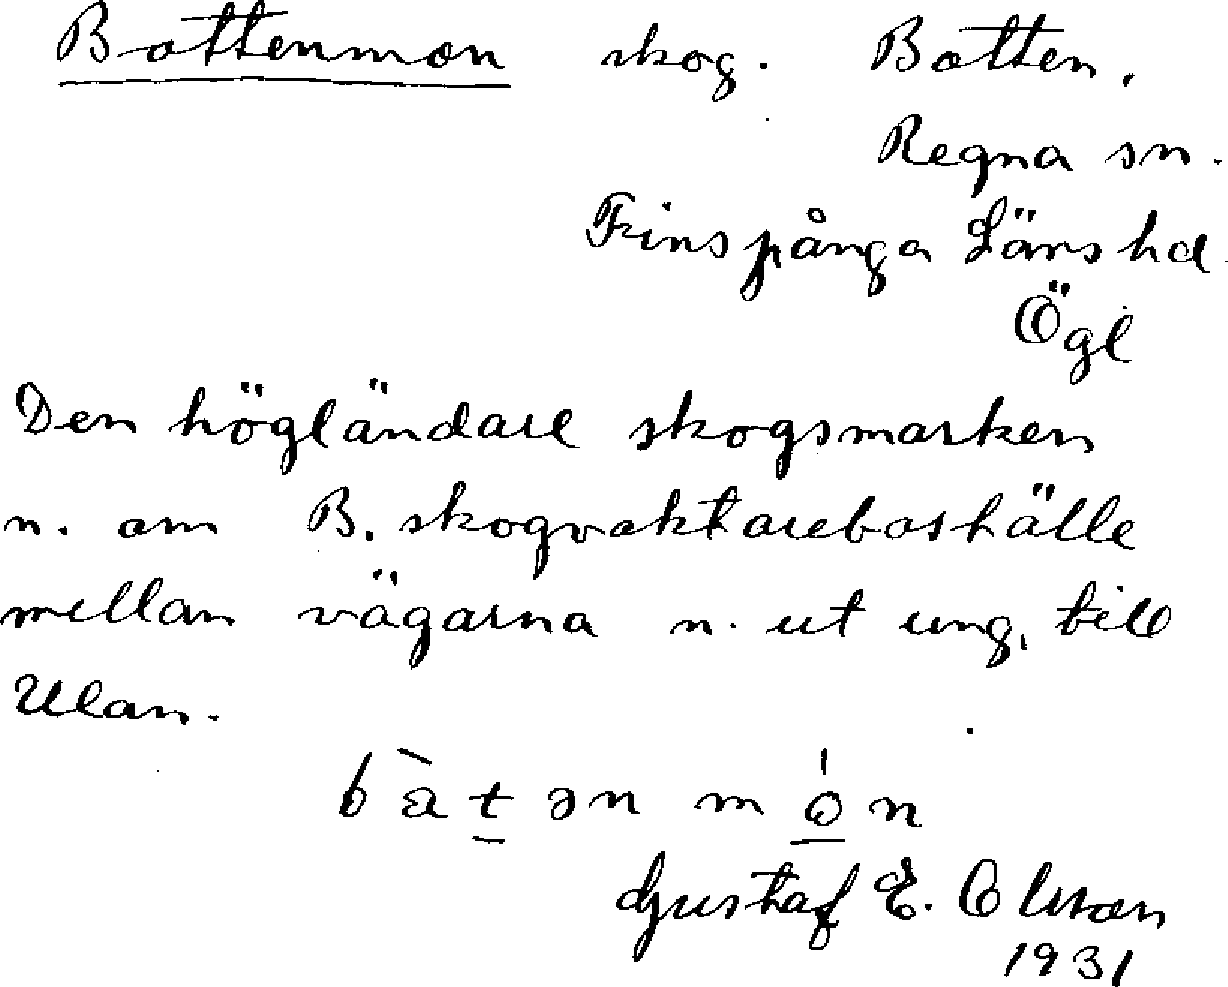 Bottenmon skog. Botten.
Regna sn.
Finspånga Läns hd.
Ögl
Den högländare skogsmarken
n. om B. skogvaktareboställe
mellan vägarna n. ut ung. till
Ulan.
Gustaf E. Olsson
1931